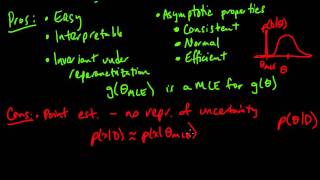 Pros: • Easy
• Interpretable
• Invariant under
reparametrization
g(θMLE) is a MLE for g(θ)
• Asymptotic properties
• Consistent
• Normal
• Efficient
p(D|θ)
θMLE θ
Cons: • Point est. - no repr. of uncertainty
p(x|D) ≈ p(x|θMLE)
p(θ|D)